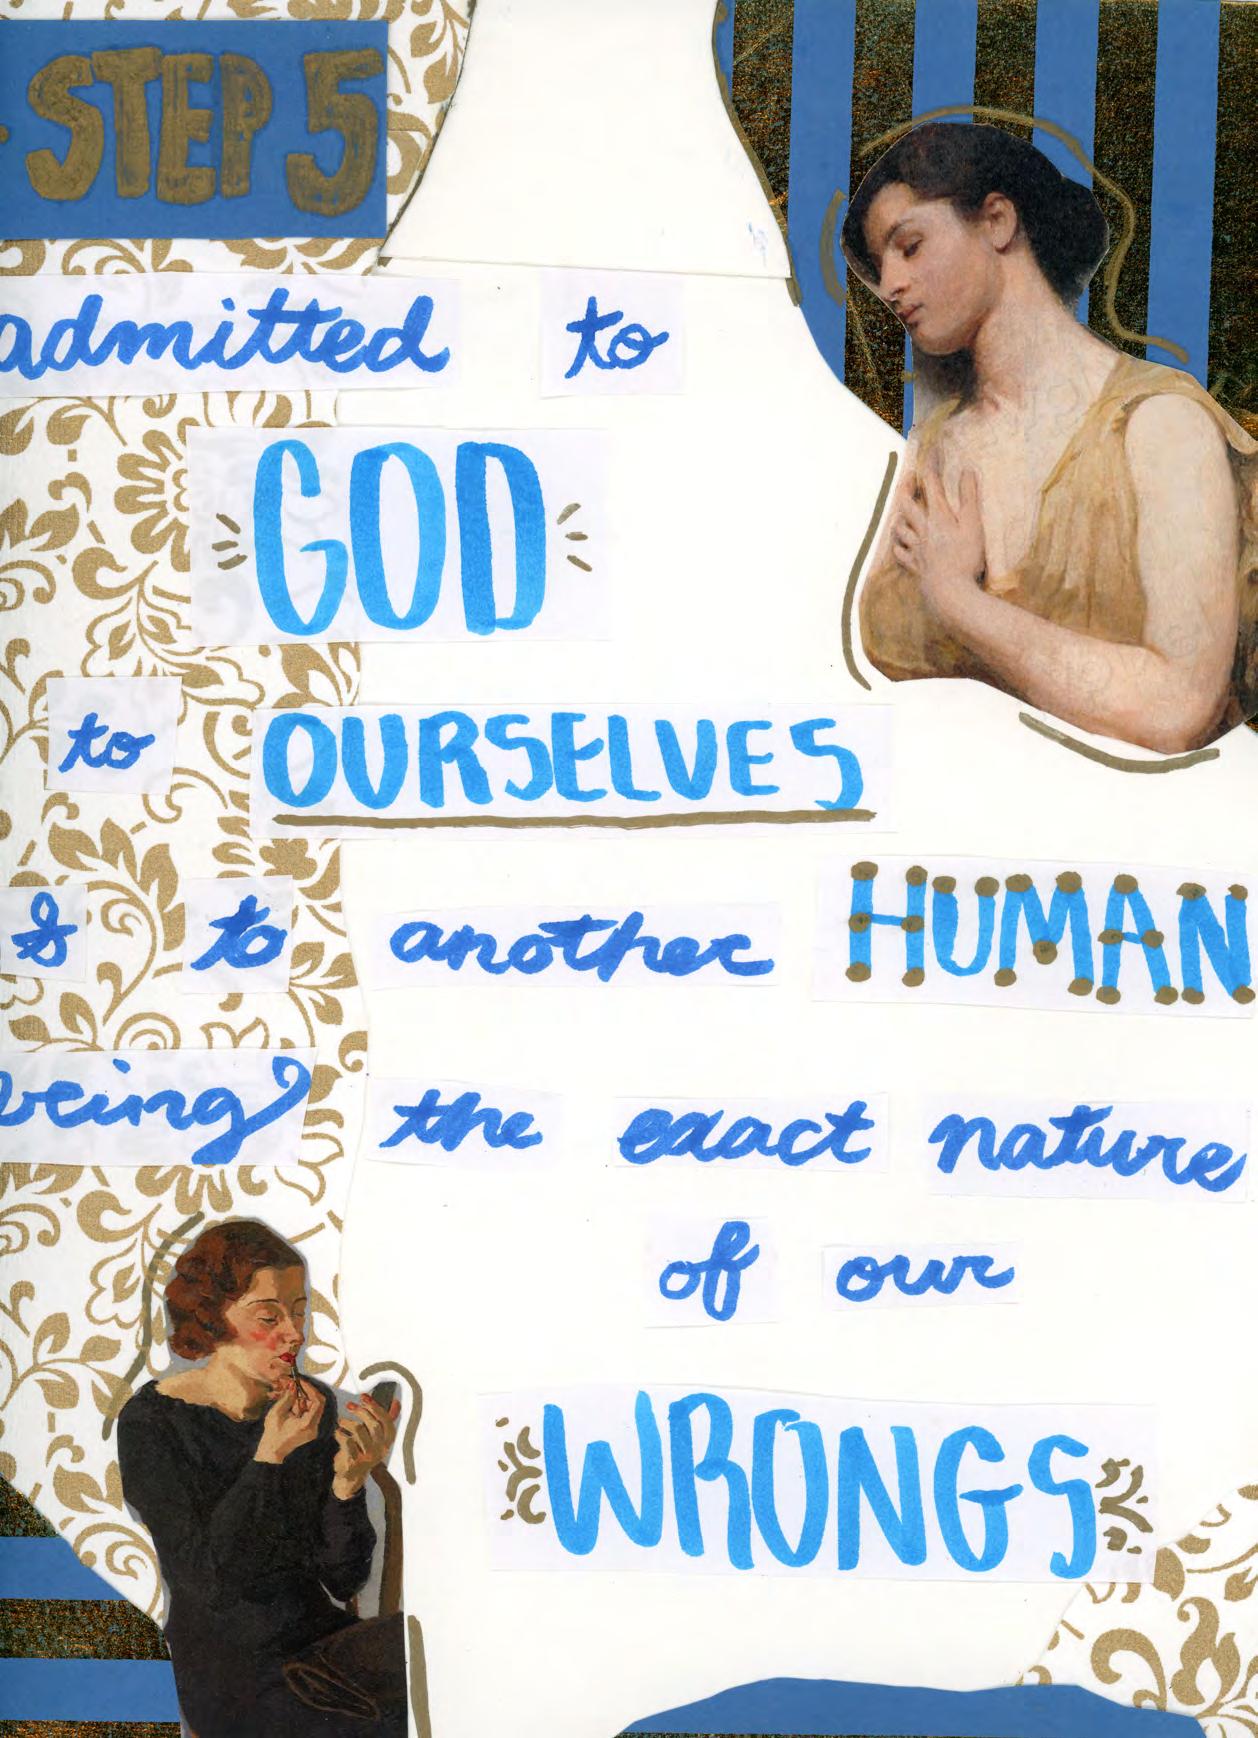 STEP 5
admitted to
GOD
to OURSELVES
& to another HUMAN
being the exact nature
of our
WRONGS